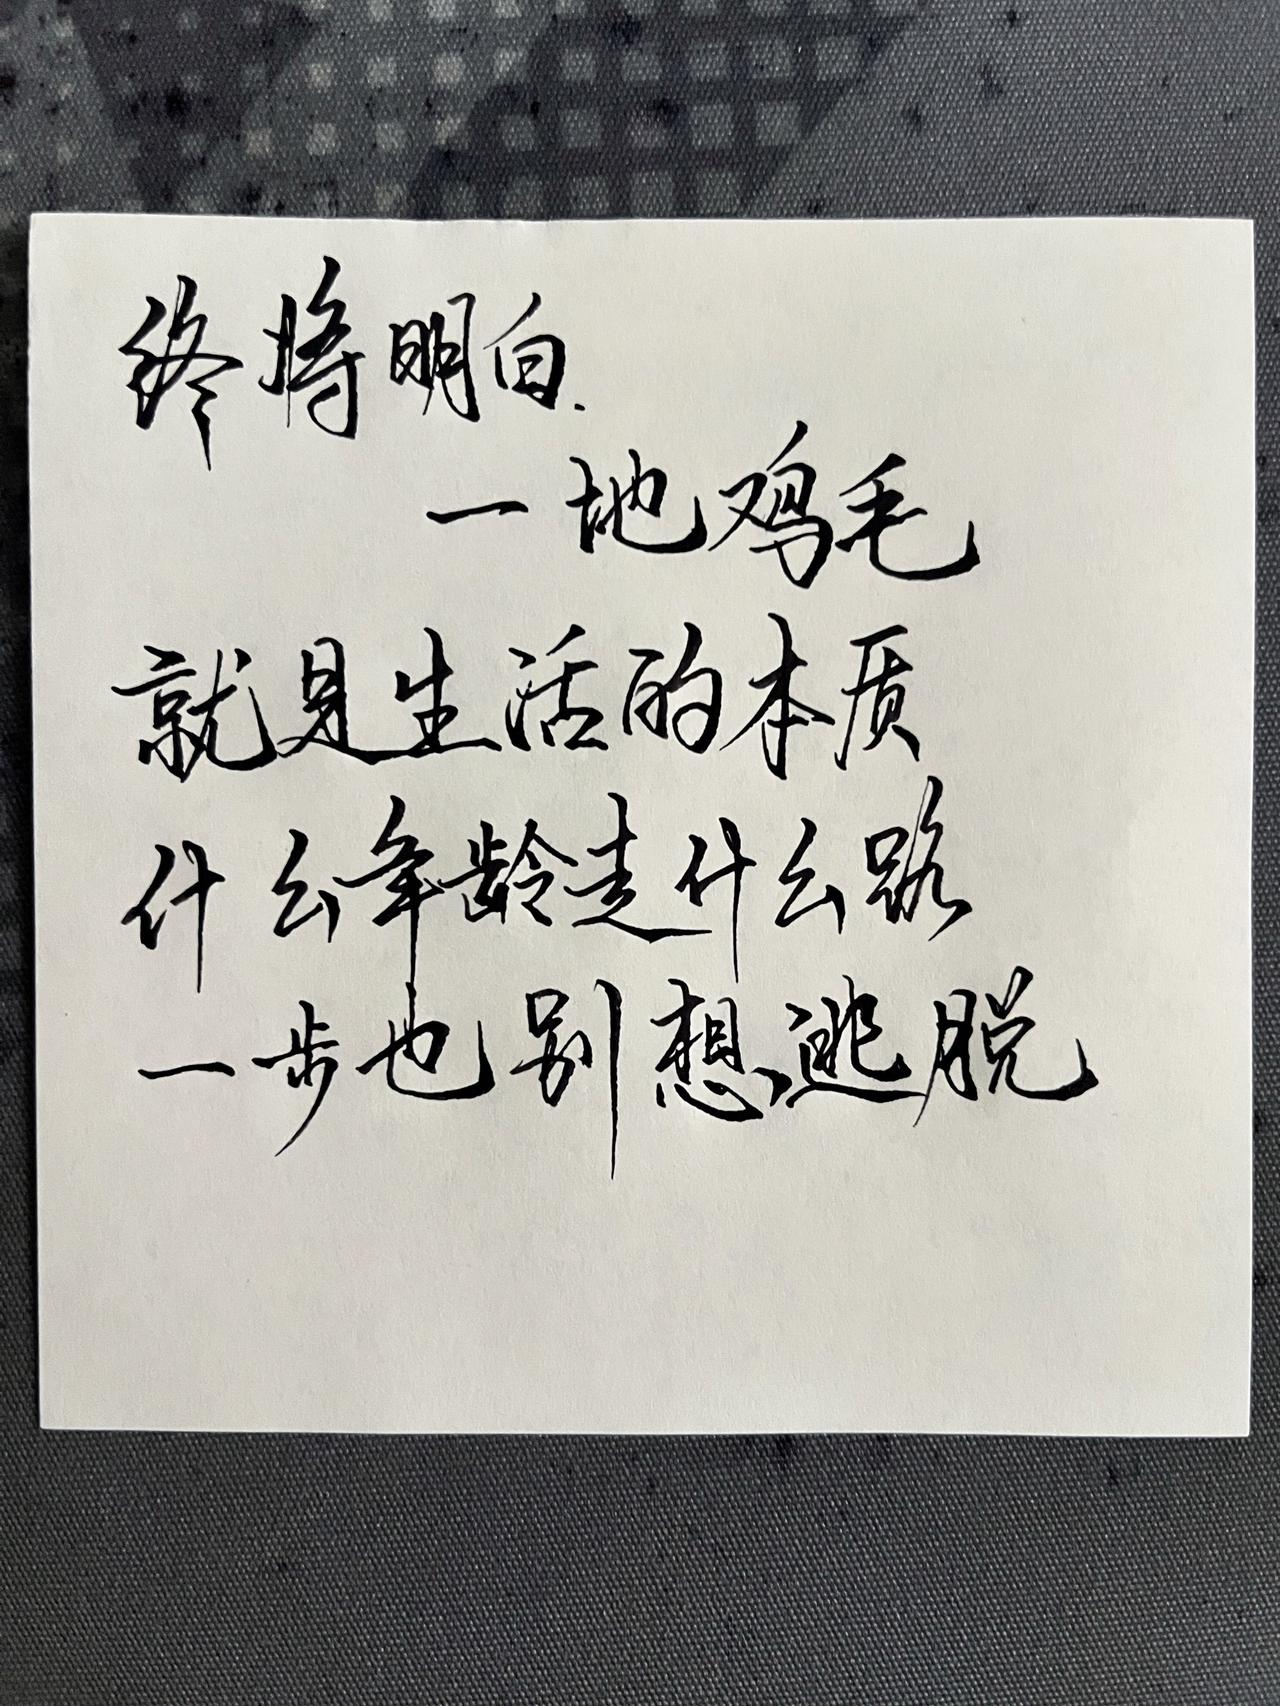 终将明白.
一地鸡毛
就是生活的本质
什么年龄走什么路
一步也别想逃脱